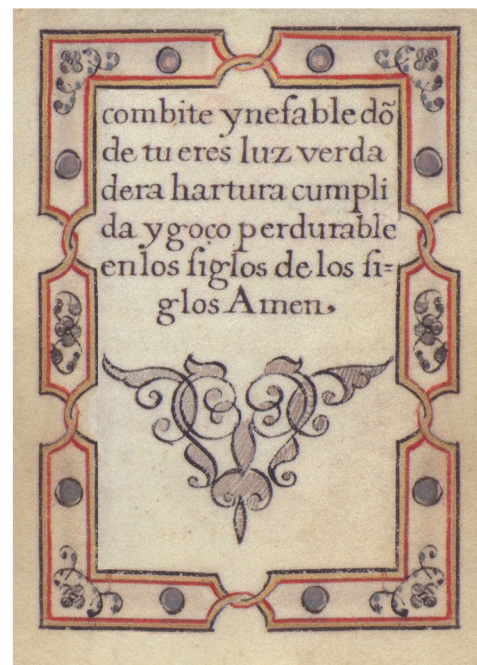 combite ynefable dõ
de tu eres luz verda
dera hartura cumpli
da y goço perdurable
en los ſiglos de los ſi=
glos Amen,